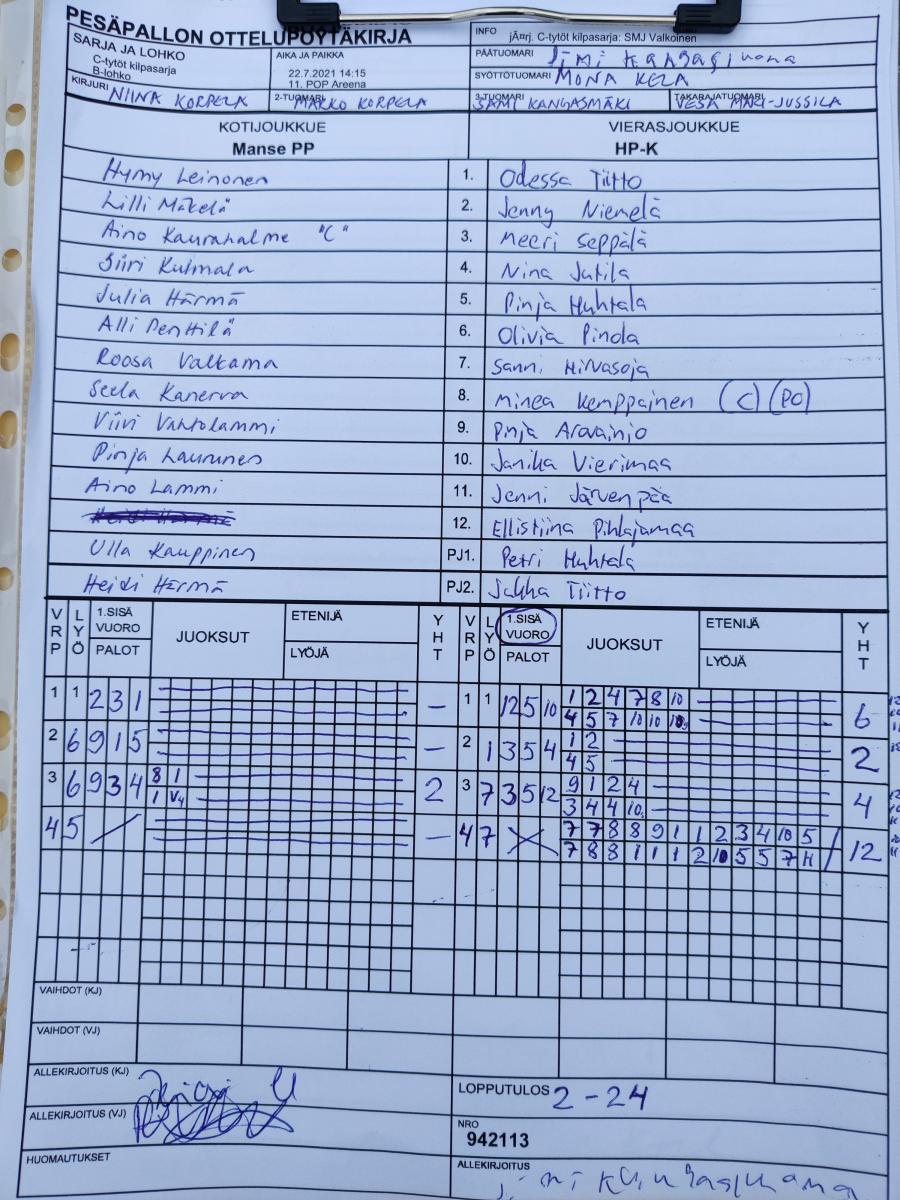 PESÄPALLON OTTELUPÖYTÄKIRJA
SARJA JA LOHKO
C-tytöt kilpasarja
B-lohko
AIKA JA PAIKKA
22.7.2021 14:15
11. POP Areena
INFO
jÃ¤rj. C-tytöt kilpasarja: SMJ Valkoinen
PÄÄTUOMARI
SYÖTTÖTUOMARI MONA KELA
KIRJURI NIINA KORPELA
2-TUOMARI MARKO KORPELA
3-TUOMARI SAMI KANGASMÄKI
TAKARAJATUOMARI VESA MÄKI-JUSSILA
KOTIJOUKKUE
Manse PP
VIERASJOUKKUE
HP-K
Hymy Leinonen 1. Odessa Tiitto
Lilli Mäkelä 2. Jenny Niemelä
Aino Kaurahalme "C" 3. Meeri Seppälä
Siiri Kulmala 4. Nina Jutila
Julia Härmä 5. Pinja Huhtala
Alli Penttilä 6. Olivia Pinola
Roosa Valkama 7. Sanni Hirvasoja
Seela Kanerva 8. Minea Kemppainen (C) (PO)
Viivi Vahtolammi 9. Pinja Aravainio
Pinja Laurunen 10. Janika Vierimaa
Aino Lammi 11. Jenni Järvenpää
12. Ellistiina Pihlajamaa
Ulla Kauppinen PJ1. Petri Huhtala
Heidi Härmä PJ2. Jukka Tiitto
VRP LYÖ 1.SISÄ VUORO PALOT JUOKSUT ETENIJÄ LYÖJÄ YHT VRP LYÖ 1.SISÄ VUORO PALOT JUOKSUT ETENIJÄ LYÖJÄ YHT
1 1 2 3 1 – 1 1 12 5 10 1 2 4 7 8 10 6
4 5 7 10 10 10
2 6 9 1 5 – 2 1 3 5 4 1 2 2
4 5
3 6 9 3 4 8 1 2 3 7 3 5 12 9 1 2 4 4
1 V4 3 4 4 10
4 5 / – 4 7 X 7 7 8 8 9 1 1 2 3 4 10 5 / 12
7 8 8 1 1 1 2 10 5 5 7 H
VAIHDOT (KJ)
VAIHDOT (VJ)
ALLEKIRJOITUS (KJ)
LOPPUTULOS 2 - 24
ALLEKIRJOITUS (VJ)
NRO
942113
HUOMAUTUKSET
ALLEKIRJOITUS